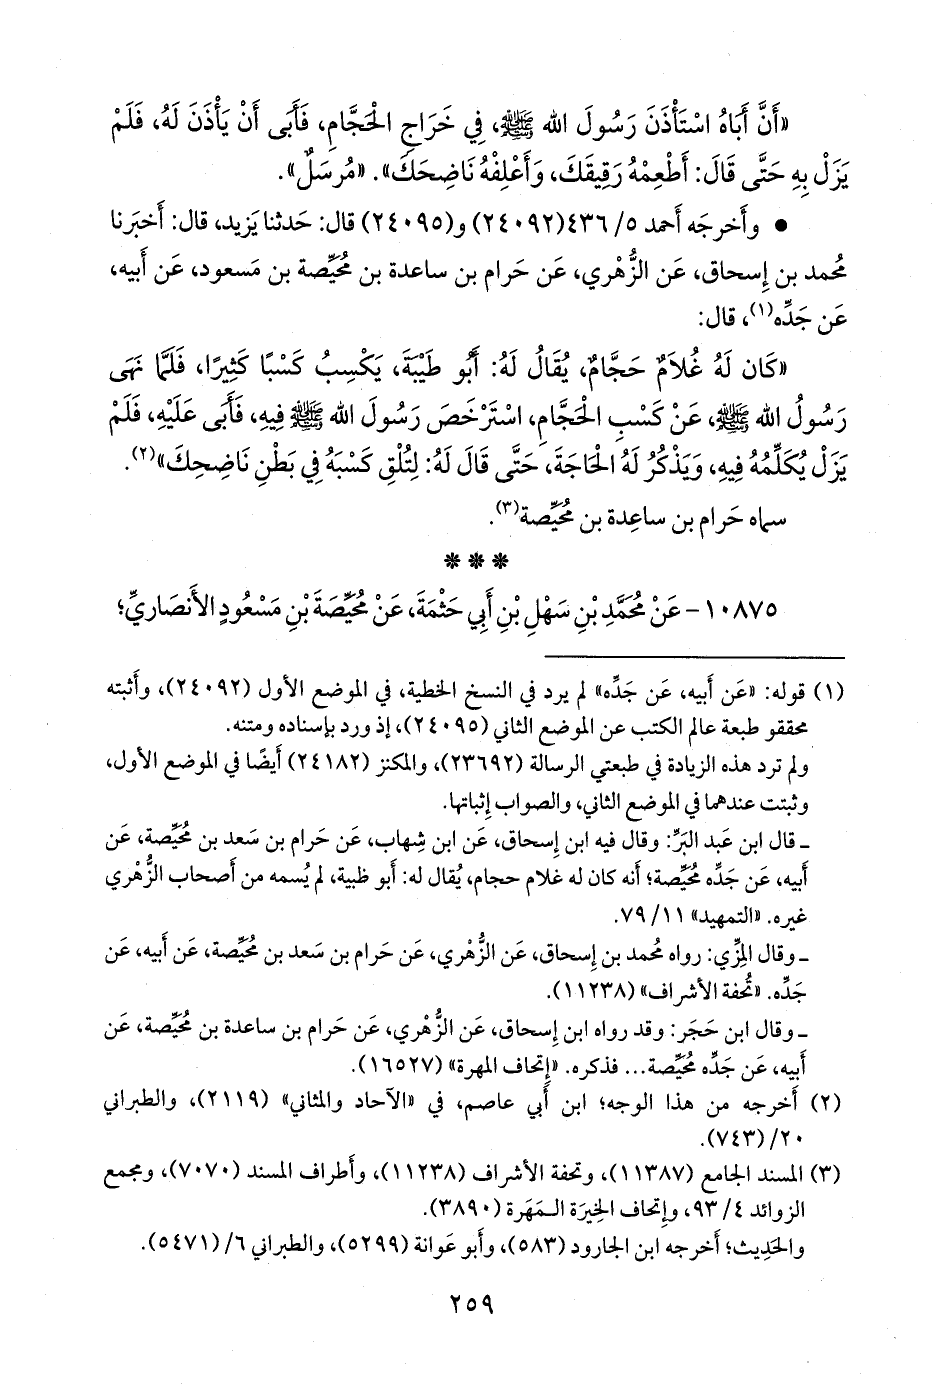 «أَنَّ أَبَاهُ اسْتَأْذَنَ رَسُولَ الله ﷺ، فِي خَرَاجِ الْحَجَّامِ، فَأَبَى أَنْ يَأْذَنَ لَهُ، فَلَمْ
يَزَلْ بِهِ حَتَّى قَالَ: أَطْعِمْهُ رَقِيقَكَ، وَأَعْلِفْهُ نَاضِحَكَ». «مُرسَلٌ».
● وأَخرجَه أحمد ٥/ ٤٣٦(٢٤٠٩٢) و(٢٤٠٩٥) قال: حَدثنا يَزيد، قال: أَخبَرنا
مُحمد بن إِسحاق، عَن الزُّهْري، عَن حَرام بن ساعدة بن مُحَيِّصة بن مَسعود، عَن أَبيه،
عَن جَدِّه(١)، قال:
«كَان لَهُ غُلاَمٌ حَجَّامٌ، يُقَالُ لَهُ: أَبُو طَيْبَةَ، يَكْسِبُ كَسْبًا كَثِيرًا، فَلَمَّا نَهَى
رَسُولُ الله ﷺ، عَنْ كَسْبِ الْحَجَّامِ، اسْتَرْخَصَ رَسُولَ الله ﷺ فِيهِ، فَأَبَى عَلَيْهِ، فَلَمْ
يَزَلْ يُكَلِّمُهُ فِيهِ، وَيَذْكُرُ لَهُ الْحَاجَةَ، حَتَّى قَالَ لَهُ: لِتُلْقِ كَسْبَهُ فِي بَطْنِ نَاضِحِكَ»(٢).
سماه حَرام بن ساعِدة بن مُحَيِّصة(٣).
* * *
١٠٨٧٥ - عَنْ مُحَمَّدِ بْنِ سَهْلِ بْنِ أَبِي حَثْمَةَ، عَنْ مُحَيِّصَةَ بْنِ مَسْعُودٍ الأَنصَارِيِّ؛
(١) قوله: «عَن أَبيه، عَن جَدِّه» لم يرد في النسخ الخطية، في الموضع الأول (٢٤٠٩٢)، وأَثبته
محققو طبعة عالم الكتب عن الموضع الثاني (٢٤٠٩٥)، إذ ورد بإسناده ومتنه.
ولم ترد هذه الزيادة في طبعتي الرسالة (٢٣٦٩٢)، والمكنز (٢٤١٨٢) أَيضًا في الموضع الأول،
وثبتت عندهما في الموضع الثاني، والصواب إثباتها.
ـ قال ابن عَبد البَرِّ: وقال فيه ابن إِسحاق، عَن ابن شِهاب، عَن حَرام بن سَعد بن مُحَيِّصة، عَن
أَبيه، عَن جَدِّه مُحَيِّصة؛ أَنه كان له غلام حجام، يُقال له: أَبو ظبية، لم يُسمه من أَصحاب الزُّهْري
غيره. «التمهيد» ١١/ ٧٩.
ـ وقال المِزِّي: رواه مُحمد بن إِسحاق، عَن الزُّهْري، عَن حَرام بن سَعد بن مُحَيِّصة، عَن أَبيه، عَن
جَدِّه. «تُحفة الأشراف» (١١٢٣٨).
ـ وقال ابن حَجَر: وقد رواه ابن إِسحاق، عَن الزُّهْري، عَن حَرام بن ساعدة بن مُحَيِّصة، عَن
أَبيه، عَن جَدِّه مُحَيِّصة... فذكره. «إتحاف المهرة» (١٦٥٢٧).
(٢) أَخرجه من هذا الوجه؛ ابن أَبي عاصم، في «الآحاد والمثاني» (٢١١٩)، والطبراني
٢٠/ (٧٤٣).
(٣) المسند الجامع (١١٣٨٧)، وتحفة الأشراف (١١٢٣٨)، وأَطراف المسند (٧٠٧٠)، ومجمع
الزوائد ٤/ ٩٣، وإِتحاف الخِيرَة المَهَرة (٣٨٩٠).
والحَدِيث؛ أَخرجه ابن الجارود (٥٨٣)، وأَبو عَوانة (٥٢٩٩)، والطبراني ٦/ (٥٤٧١).
٢٥٩